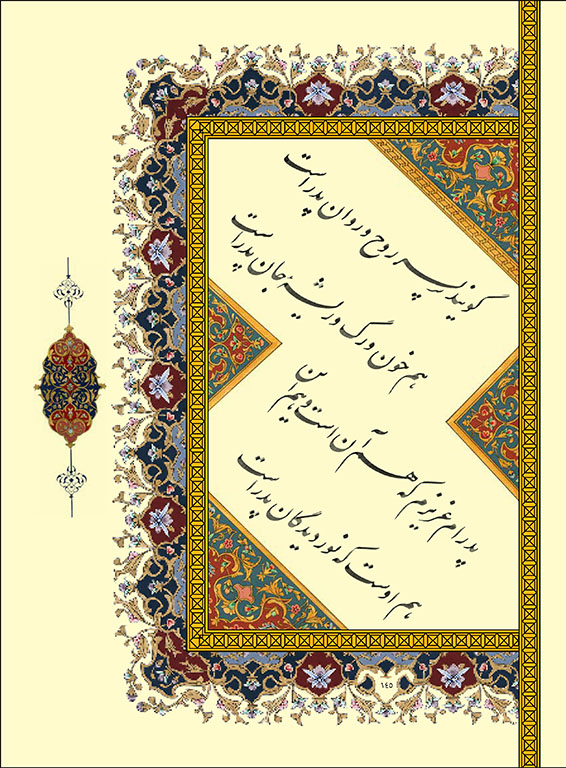 گویند پسر روح و روان پدر است
هم خون و رگ و ریشه جان پدر است
پدرام عزیزم که هم آن است و هم این
هم اوست که نور دیدگان پدر است
١٤٥